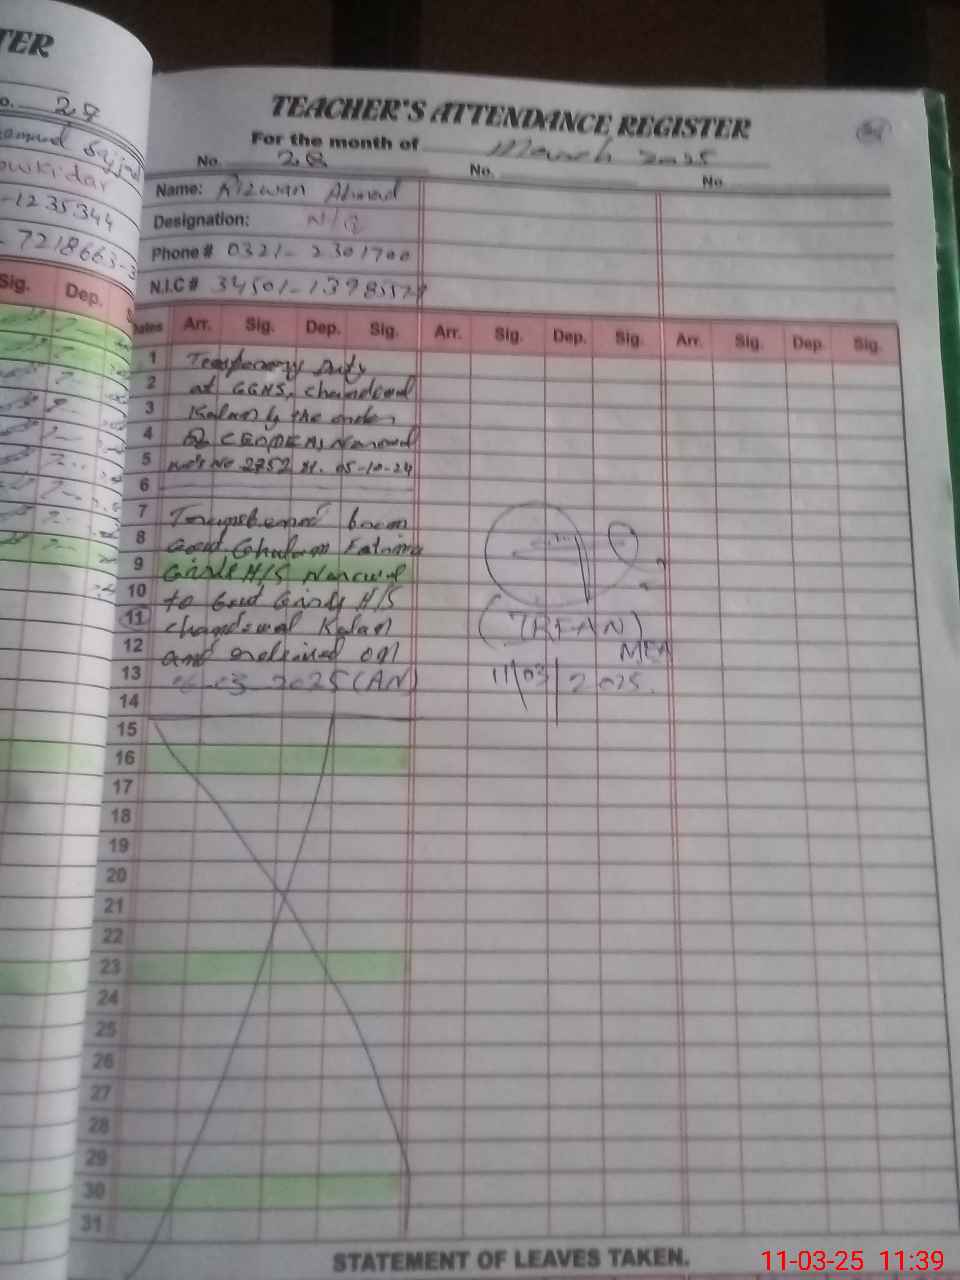 TER
o. 29
Sajjad
owkidar
-1235344
- 7218663-3
Sig. Dep.
TEACHER'S ATTENDANCE REGISTER
For the month of March 2025
No. 28 No. No.
Name: Rizwan Ahmad
Designation: N/Q
Phone # 0321- 2301700
N.I.C # 34501-
Dates Arr. Sig. Dep. Sig. Arr. Sig. Dep. Sig. Arr. Sig. Dep. Sig.
1 Temporary Duty
2 at GGHS, chandowal
3 Kalan by the order
4 CEO(DEA) Narowal
5 No 2752 dt. 05-10-24
6
7 Transferred from
8 Govt Ghulam Fatima
9 Girls H/S Narowal
10 to Govt Girls H/S
11 chandowal Kalan
12 and relieved on
13 06-03-2025 (AN)
(IRFAN)
MEA
11/03/2025.
14
15
16
17
18
19
20
21
22
23
24
25
26
27
28
29
30
31
STATEMENT OF LEAVES TAKEN.
11-03-25 11:39